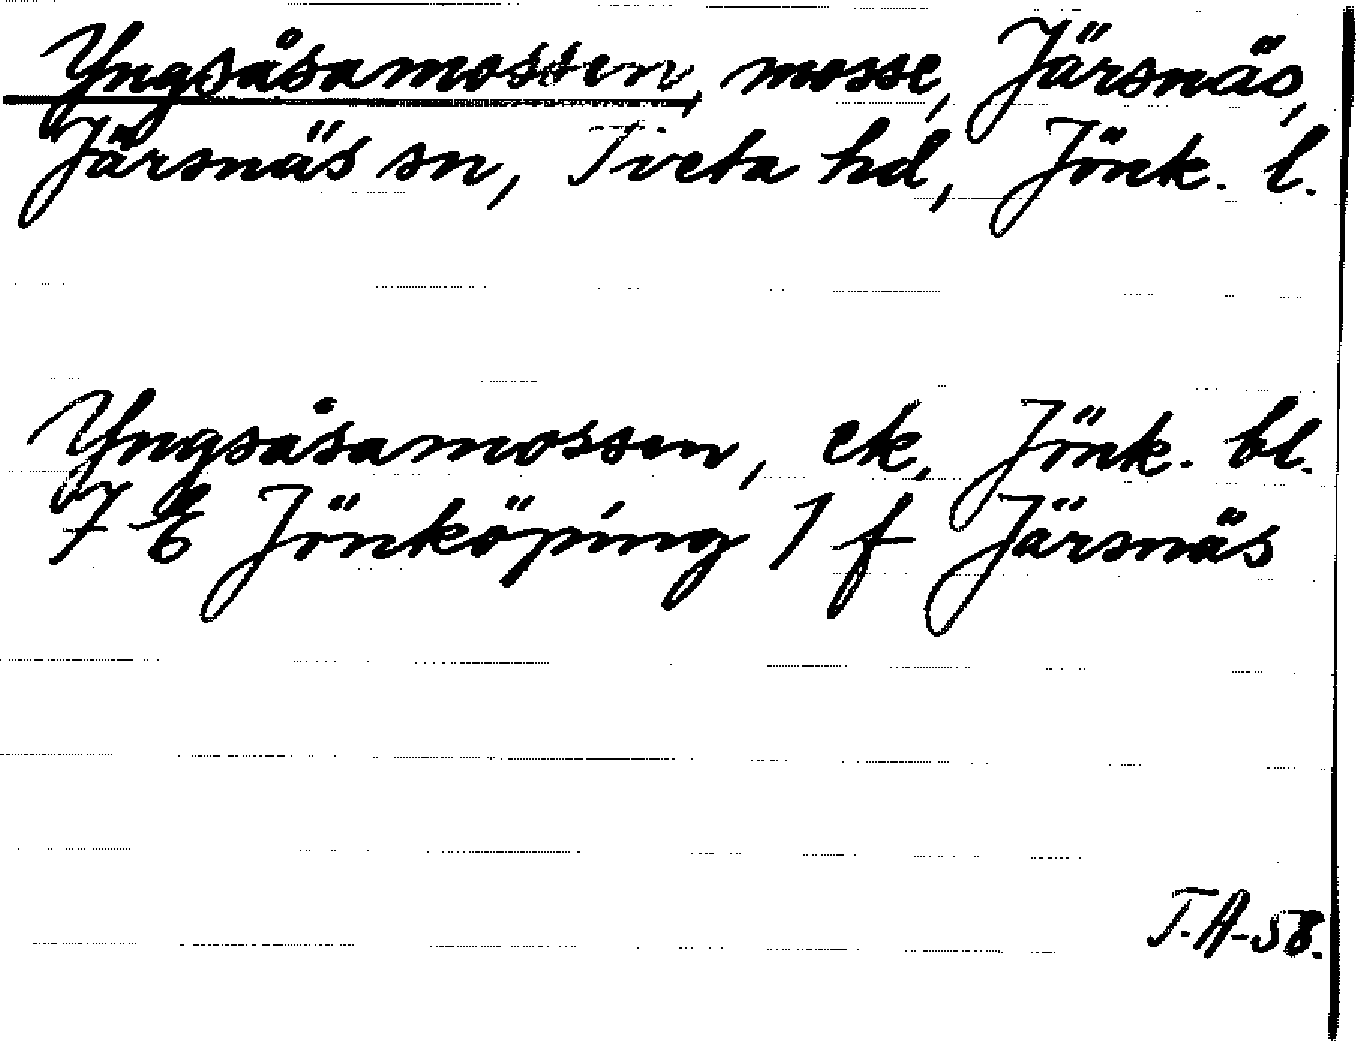 Yngsåsamossen, mosse, Järsnäs,
Järsnäs sn, Tveta hd, Jönk. l.
Yngsåsamossen, ek, Jönk. bl.
7 E Jönköping 1 f Järsnäs
T.A-58.